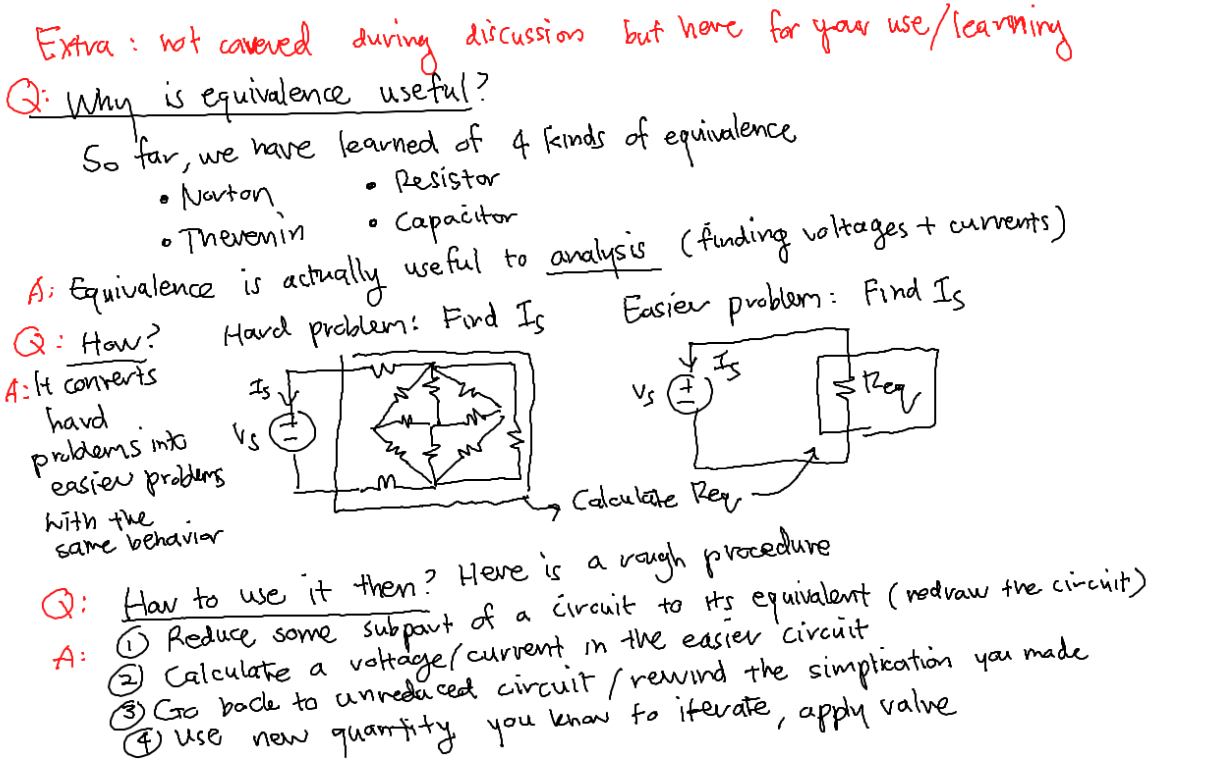 Extra: not covered during discussion but here for your use/learning
Q: Why is equivalence useful?
So far, we have learned of 4 kinds of equivalence
• Norton • Resistor
• Thevenin • Capacitor
A: Equivalence is actually useful to analysis (finding voltages + currents)
Q: How? Hard problem: Find Is Easier problem: Find Is
A: It converts
hard
problems into
easier problems
with the
same behavior
Is
Vs
+
−
Is
Vs
+
−
Req
Calculate Req
Q: How to use it then? Here is a rough procedure
A: ① Reduce some subpart of a circuit to its equivalent (redraw the circuit)
② Calculate a voltage/current in the easier circuit
③ Go back to unreduced circuit/rewind the simplication you made
④ Use new quantity you know to iterate, apply value